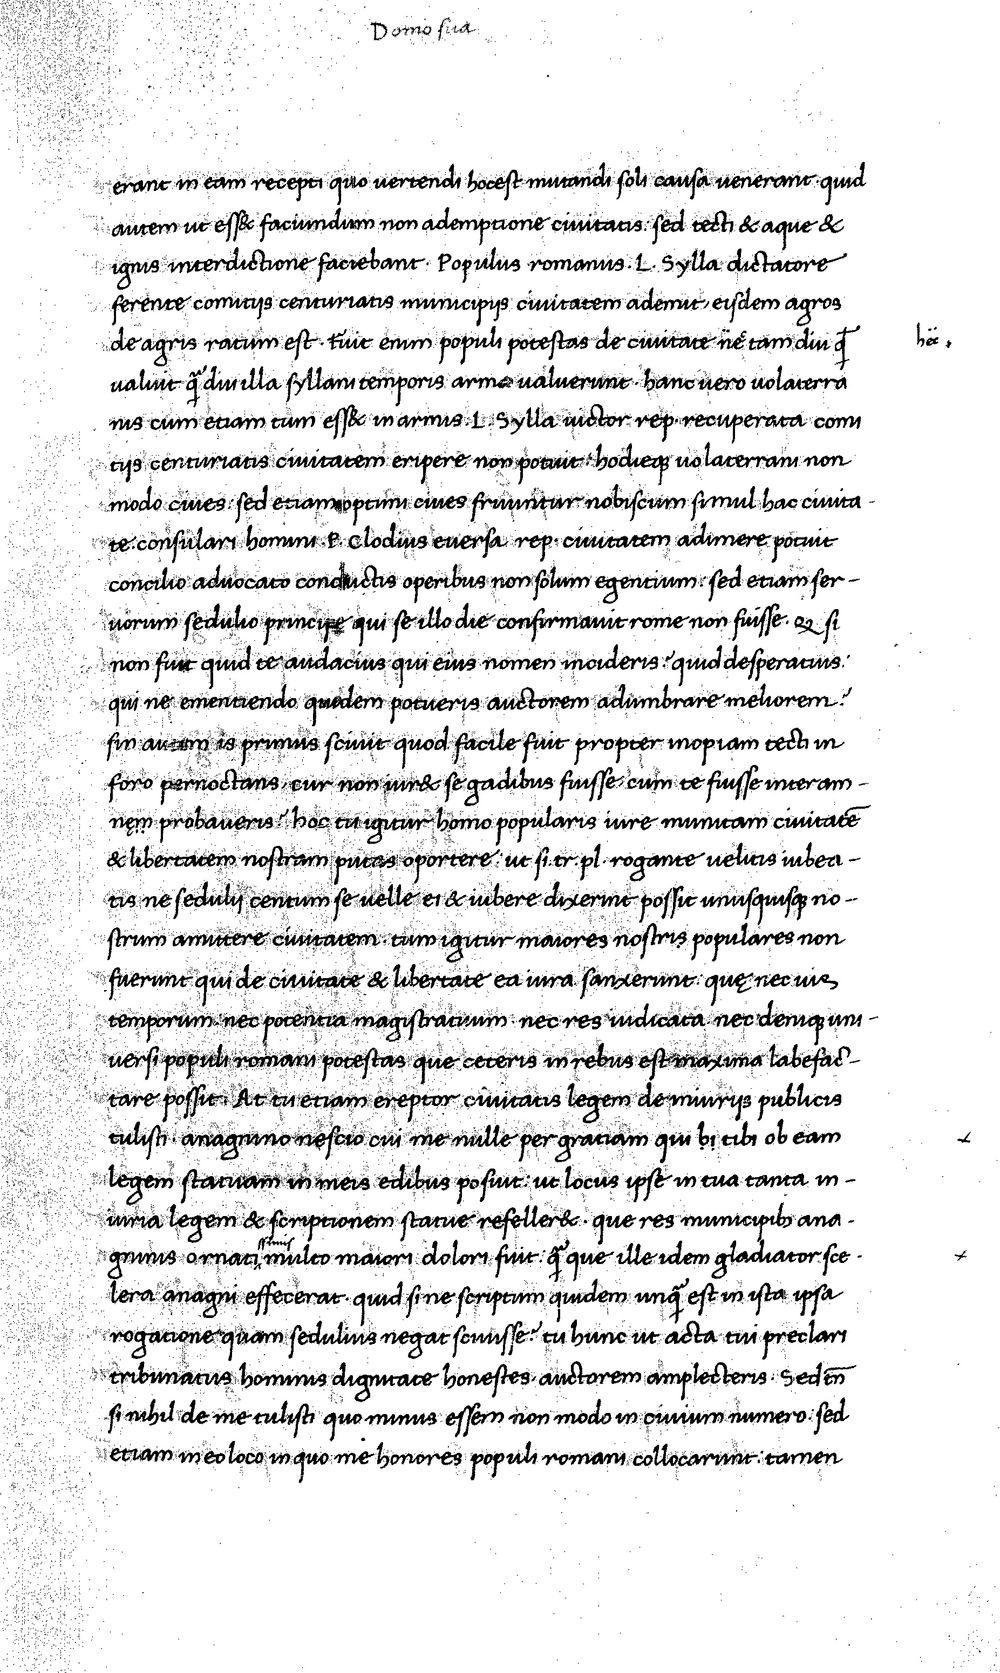 Domo sua
erant in eam recepti quo uertendi hocest mutandi soli causa uenerant. quid
autem ut ess& faciundum non ademptione ciuitatis. sed tecti & aque &
ignis interdictione faciebant. Populus romanus. L. Sylla dictatore
ferente comitijs centuriatis municipijs ciuitatem ademit, eisdem agros
de agris ratum est. fuit enim populi potestas de ciuitate ne tam diu q̃
hẽc.
ualuit q̃ diu illa syllani temporis arma ualuerunt. hanc uero uolaterra
nis cum etiam tum ess& in armis. L. Sylla uictor rep. recuperata comi
tijs centuriatis ciuitatem eripere non potuit: hodieq; uolaterrani non
modo ciues. sed etiam optimi ciues fruuntur nobiscum simul hac ciuita-
te. consulari homini. P. Clodius euersa rep. ciuitatem adimere potuit
concilio aduocato conductis operibus non solum egentium. sed etiam ser-
uorum sedulio principe qui se illo die confirmauit rome non fuisse. si
non fuit quid te audacius qui eius nomen incideris? quid desperatius.
qui ne ementiendo quidem potueris auctorem adumbrare meliorem?
sin autem is primus sciuit quod facile fuit propter inopiam tecti in
foro pernoctans, cur non iur& se gadibus fuisse, cum te fuisse interam-
nem probaueris? hoc tu igitur homo popularis iure munitam ciuitatẽ
& libertatem nostram putas oportere. ut si tr. pl. rogante uelitis iubea-
tis ne sedulij centum se uelle ei & iubere dixerint possit unusquisq; no-
strum amittere ciuitatem. tum igitur maiores nostris populares non
fuerunt qui de ciuitate & libertate ea iura sanxerunt. quę nec uis
temporum. nec potentia magistratuum. nec res iudicata. nec deniq; uni-
uersi populi romani potestas que ceteris in rebus est maxima labefac-
tare possit. At tu etiam ereptor ciuitatis legem de iniurijs publicis
tulisti. anagnino nescio cui me nulle per gratiam qui bi tibi ob eam
legem statuam in meis edibus posuit. ut locus ipse in tua tanta in-
iuria legem & scriptionem statue refeller&. que res municipib; ana-
gninis ornati multo maiori dolori fuit. q̃ que ille idem gladiator sce-
lera anagni effecerat. quid si ne scriptum quidem unq̃ est in ista ipsa
rogatione quam sedulius negat sciuisse? tu hunc ut acta tui preclari
tribunatus hominis dignitate honestes. auctorem amplecteris. Sed
si nihil de me tulisti quo minus essem non modo in ciuium numero. sed
etiam in eo loco in quo me honores populi romani collocarunt. tamen